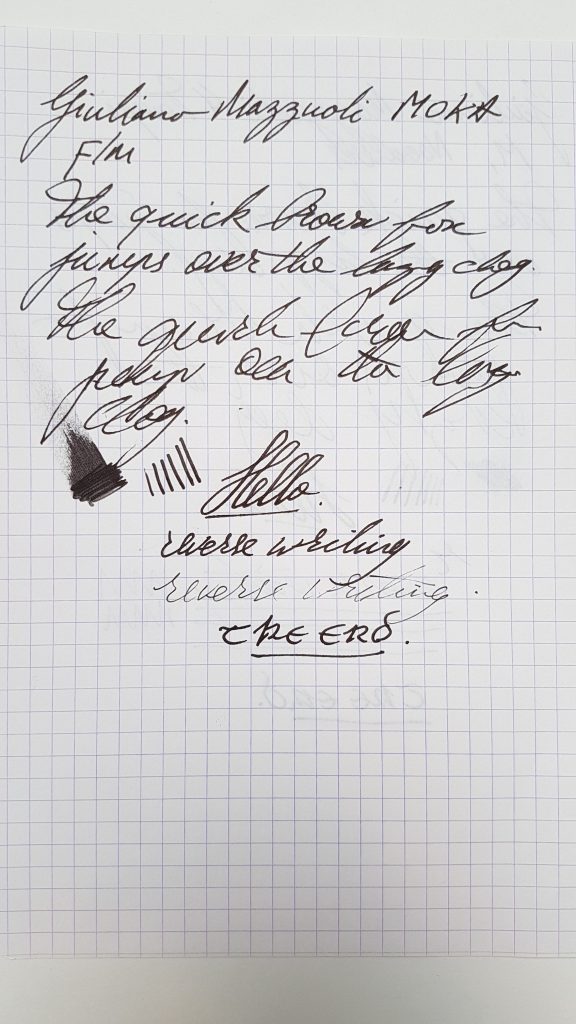 Giuliano Mazzuoli MOKA
F/M
The quick brown fox
jumps over the lazy dog.
The quick brown fox
jumps over the lazy
dog.
Hello.
reverse writing
reverse writing.
THE END.